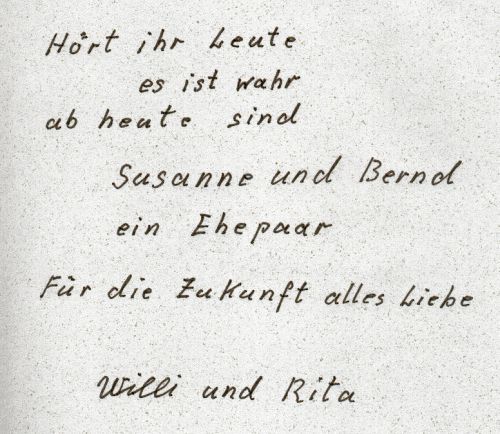 Hört ihr Leute
es ist wahr
ab heute sind
Susanne und Bernd
ein Ehepaar
Für die Zukunft alles Liebe
Willi und Rita